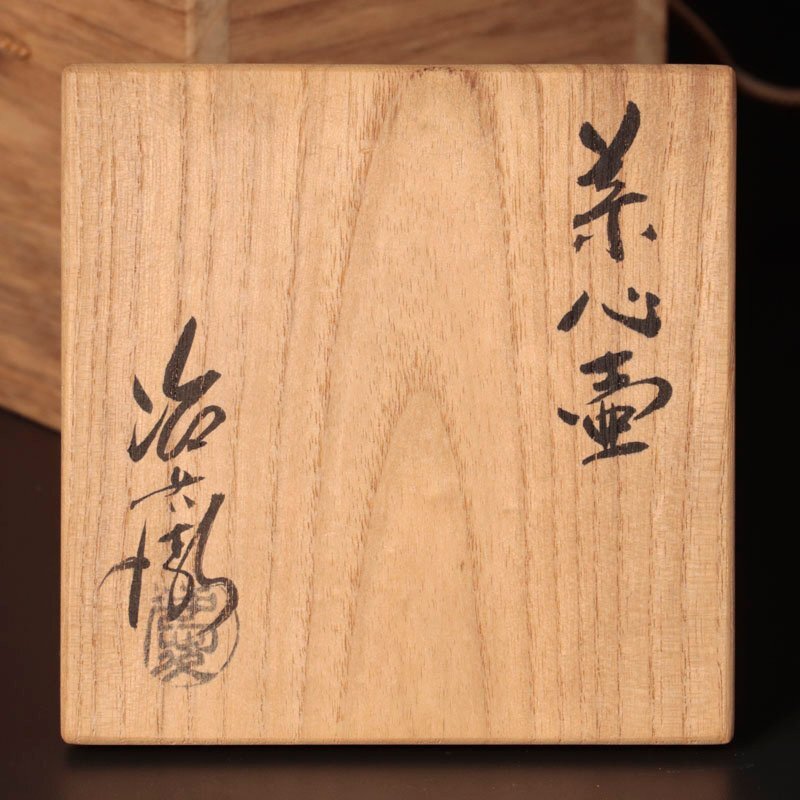 茶心壺
治兵衛